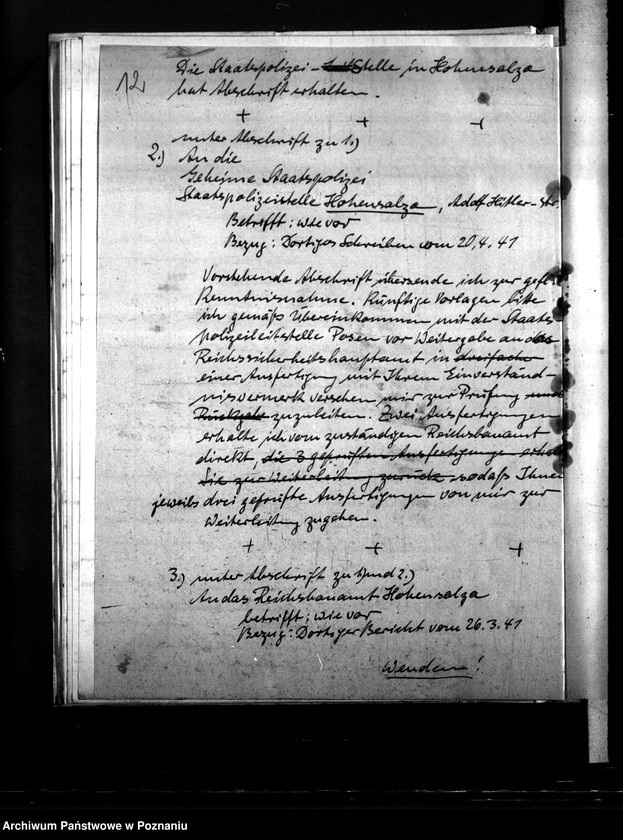 12
Die Staatspolizei-Stelle in Hohensalza
hat Abschrift erhalten.
+ + +
unter Abschrift zu 1.)
2.) An die
Geheime Staatspolizei
Staatspolizeistelle Hohensalza, Adolf Hitler-Str.
Betrifft: wie vor
Bezug: Dortiges Schreiben vom 20.4.41
Vorstehende Abschrift übersende ich zur gefl.
Kenntnisnahme. Künftige Vorlagen bitte
ich gemäß Übereinkommen mit der Staats
polizeileitstelle Posen vor Weitergabe an das
Reichssicherheitshauptamt in dreifacher
einer Ausfertigung mit Ihrem Einverständ-
nisvermerk versehen mir zur Prüfung und
Rückgabe zuzuleiten. Zwei Ausfertigungen
erhalte ich vom zuständigen Reichsbauamt
direkt, die 3 geprüften Ausfertigungen
Sie zur Weiterleitung zurück sodaß Ihnen
jeweils drei geprüfte Ausfertigungen von mir zur
Weiterleitung zugehen.
+ + +
3.) unter Abschrift zu 1) und 2.)
An das Reichsbauamt Hohensalza
betrifft: wie vor
Bezug: Dortiger Bericht vom 26.3.41
Wenden!
Archiwum Państwowe w Poznaniu